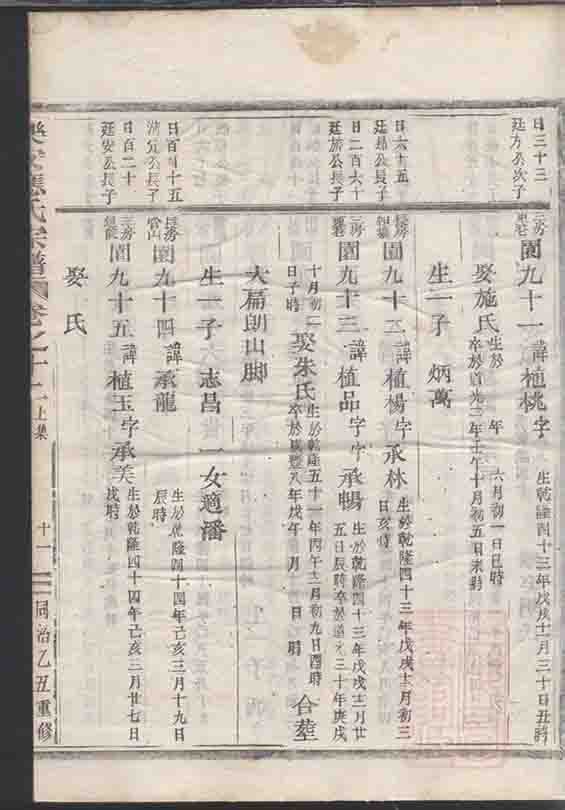 日三十三
廷方公次子
三房
園九十一諱植桃字
生乾隆四十三年戊戌十二月三十日丑時
娶施氏
生於 年 六月初一日巳時
卒於道光二年壬午十月初五日未時
生一子炳萬
日六十五
廷昂公長子
長房
園九十二諱植楊字承林
生於乾隆四十三年戊戌十二月初三
日亥時
日二百六十
廷旂公長子
三房
園九十三諱植品字承暢
生於乾隆四十三年戊戌十二月廿
五日辰時卒於道光三十年庚戌
十月初二
日子時
娶朱氏
生於乾隆五十一年丙午十二月初九日酉時
卒於咸豐八年戊午 月 日 時
合塟
大扁朗山脚
生一子志昌一女適潘
日百四十五
公長子
長房
園九十四諱承龍
生於乾隆四十四年己亥三月十九日
辰時
日百二十
廷安公長子
三房
園九十五諱植玉字承美
生於乾隆四十四年己亥三月廿七日
戌時
娶氏
氏宗譜
卷之十二上集
十一
同治乙丑重修